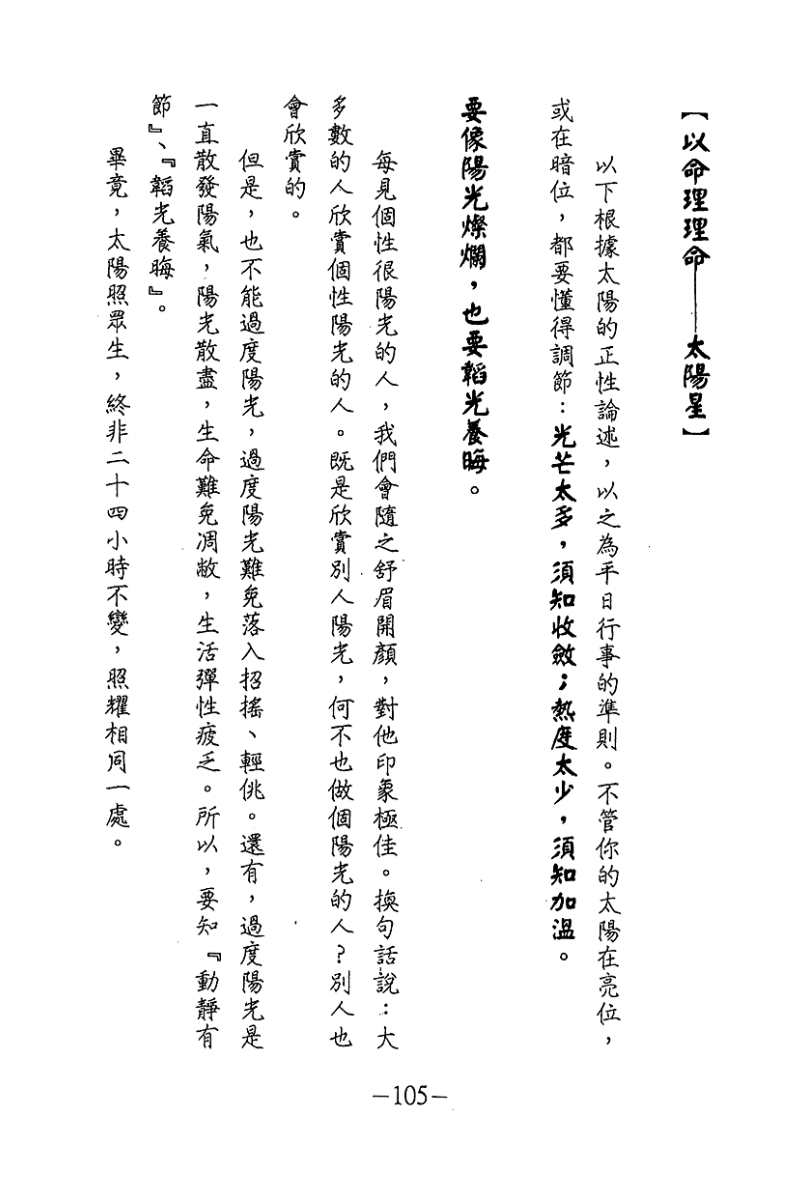 【以命理理命——太陽星】
以下根據太陽的正性論述，以之為平日行事的準則。不管你的太陽在亮位，
或在暗位，都要懂得調節：光芒太多，須知收斂；熱度太少，須知加溫。
要像陽光燦爛，也要韜光養晦。
每見個性很陽光的人，我們會隨之舒眉開顏，對他印象極佳。換句話說：大
多數的人欣賞個性陽光的人。既是欣賞別人陽光，何不也做個陽光的人？別人也
會欣賞的。
但是，也不能過度陽光，過度陽光難免落入招搖、輕佻。還有，過度陽光是
一直散發陽氣，陽光散盡，生命難免凋敝，生活彈性疲乏。所以，要知『動靜有
節』、『韜光養晦』。
畢竟，太陽照眾生，終非二十四小時不變，照耀相同一處。
—105—